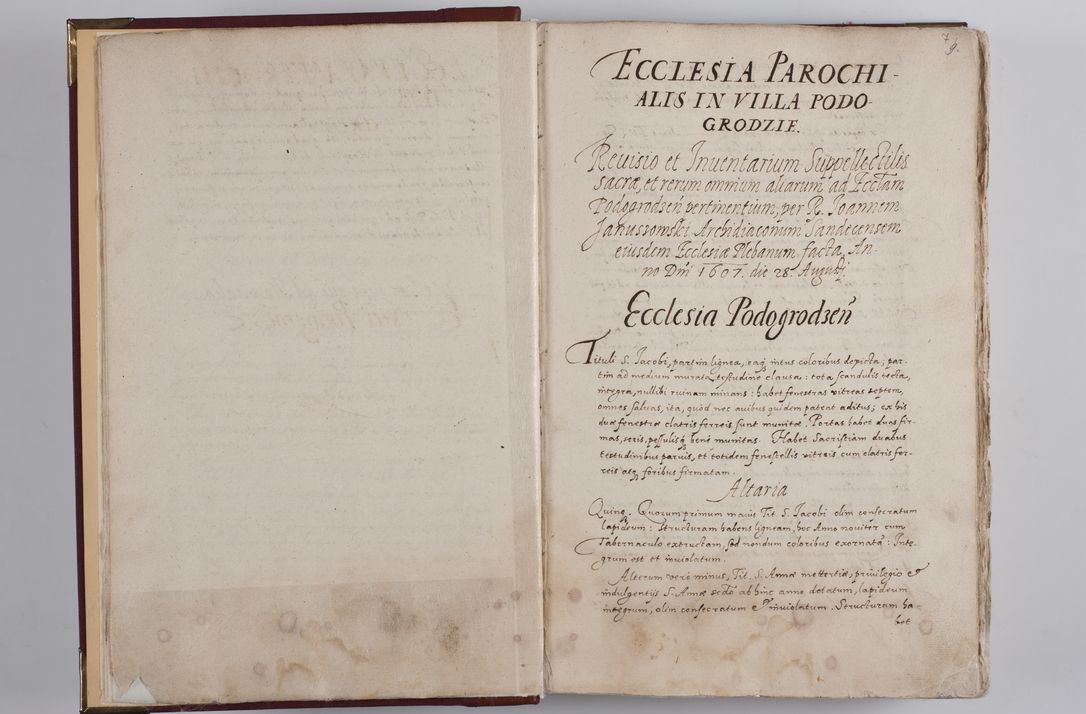 7
9.
ECCLESIA PAROCHI-
ALIS IN VILLA PODO-
GRODZIE.
Reuisio et Inuentarium Suppellectilis
sacræ, et rerum omnium aliarum ad Eccłam
Podogrodzeń pertinentium, per R. Joannem
Januszowski Archidiaconum Sandecensem
eiusdem Ecclesiæ Plebanum facta, An-
no Dnĩ 1607. die 28. Augusti.
Ecclesia Podogrodzeñ
Tituli S. Jacobi, partim lignea, eaq; intus coloribus depicta; par-
tim ad medium murata, testudine clausa: tota scandulis tecta,
integra, nullibi ruinam minans: habet fenestras vitreas septem,
omnes saluas, ita, quòd nec auibus quidem pateat aditus; ex his
duæ fenestræ clatris ferreis sunt munitæ. Portas habet duas fir-
mas, seris, pessulisq; benè munitas. Habet Sacristiam duabus
testudinibus paruis, et totidem fenestellis vitreis cum clatris fer-
reis atq; foribus firmatam.
Altaria
Quinq;. Quorum primum maius Tit. S. Jacobi olim consecratum
lapideum: structuram habens ligneam, hoc Anno nouiter cum
Tabernaculo extructam, sed nondum coloribus exornatã: Inte-
grum est et inuiolatum.
Alterum verò minus, Tit. S. Annæ mettertiæ, priuilegio et
indulgentijs S. Annæ scdõ abhinc anno dotatum, lapideum
integrum, olim consecratum et inuiolatum. Structuram ha-
bet